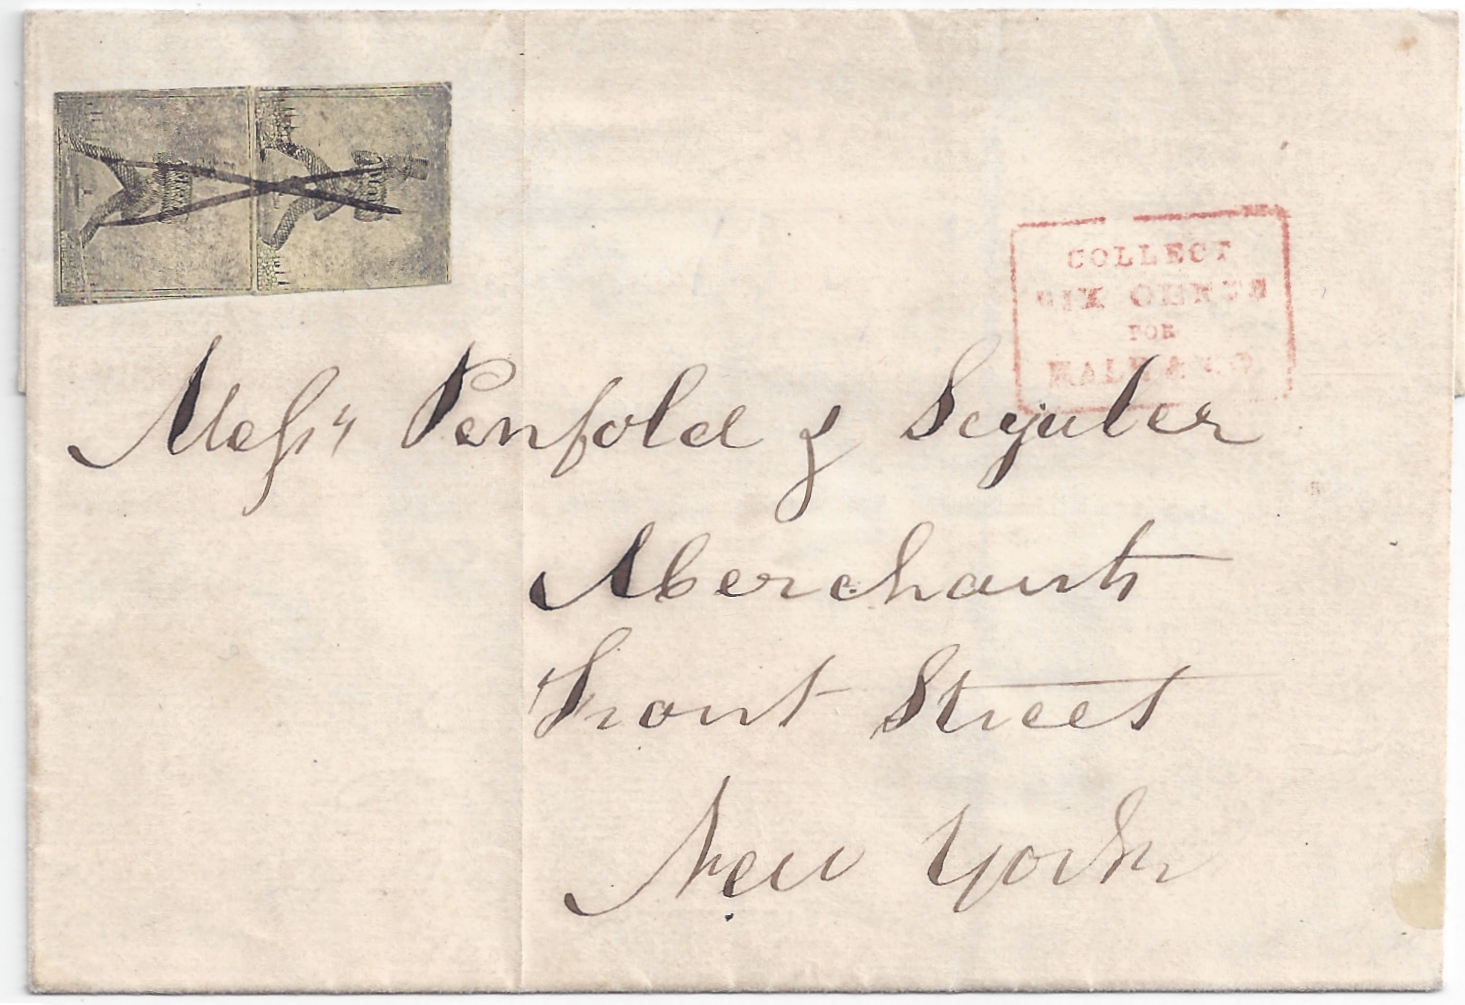 COLLECT
SIX CENTS
FOR
HALE & Co
Messrs Penfold & Scyuler
Merchants
Front Street
New York